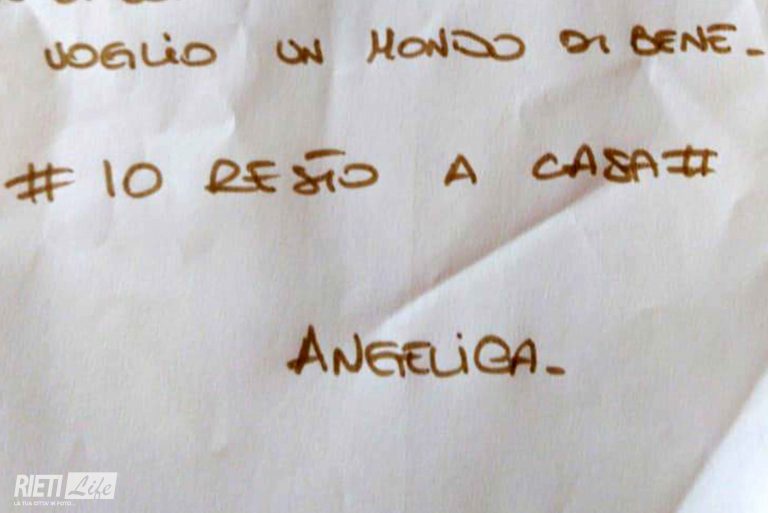 VOGLiO UN MONDO Di BENE.
# IO RESTO A CASA#
ANGELiCA.
RIETI Life
LA TUA CITTA' IN FOTO...